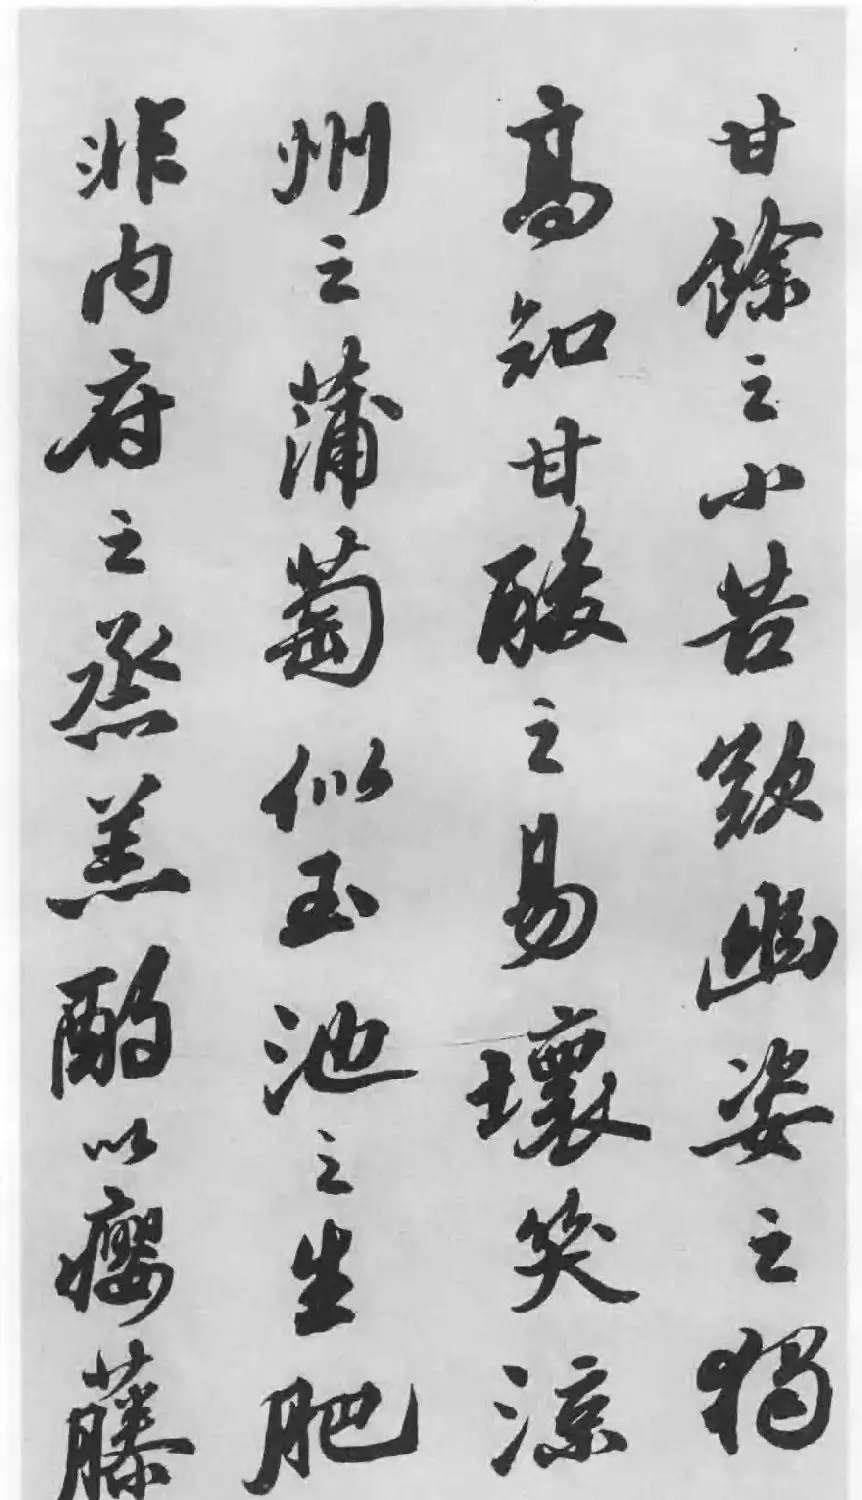 甘餘之小苦歎幽姿之獨
高知甘酸之易壞笑涼
州之蒲萄似玉池之生肥
非内府之烝羔酌以癭藤